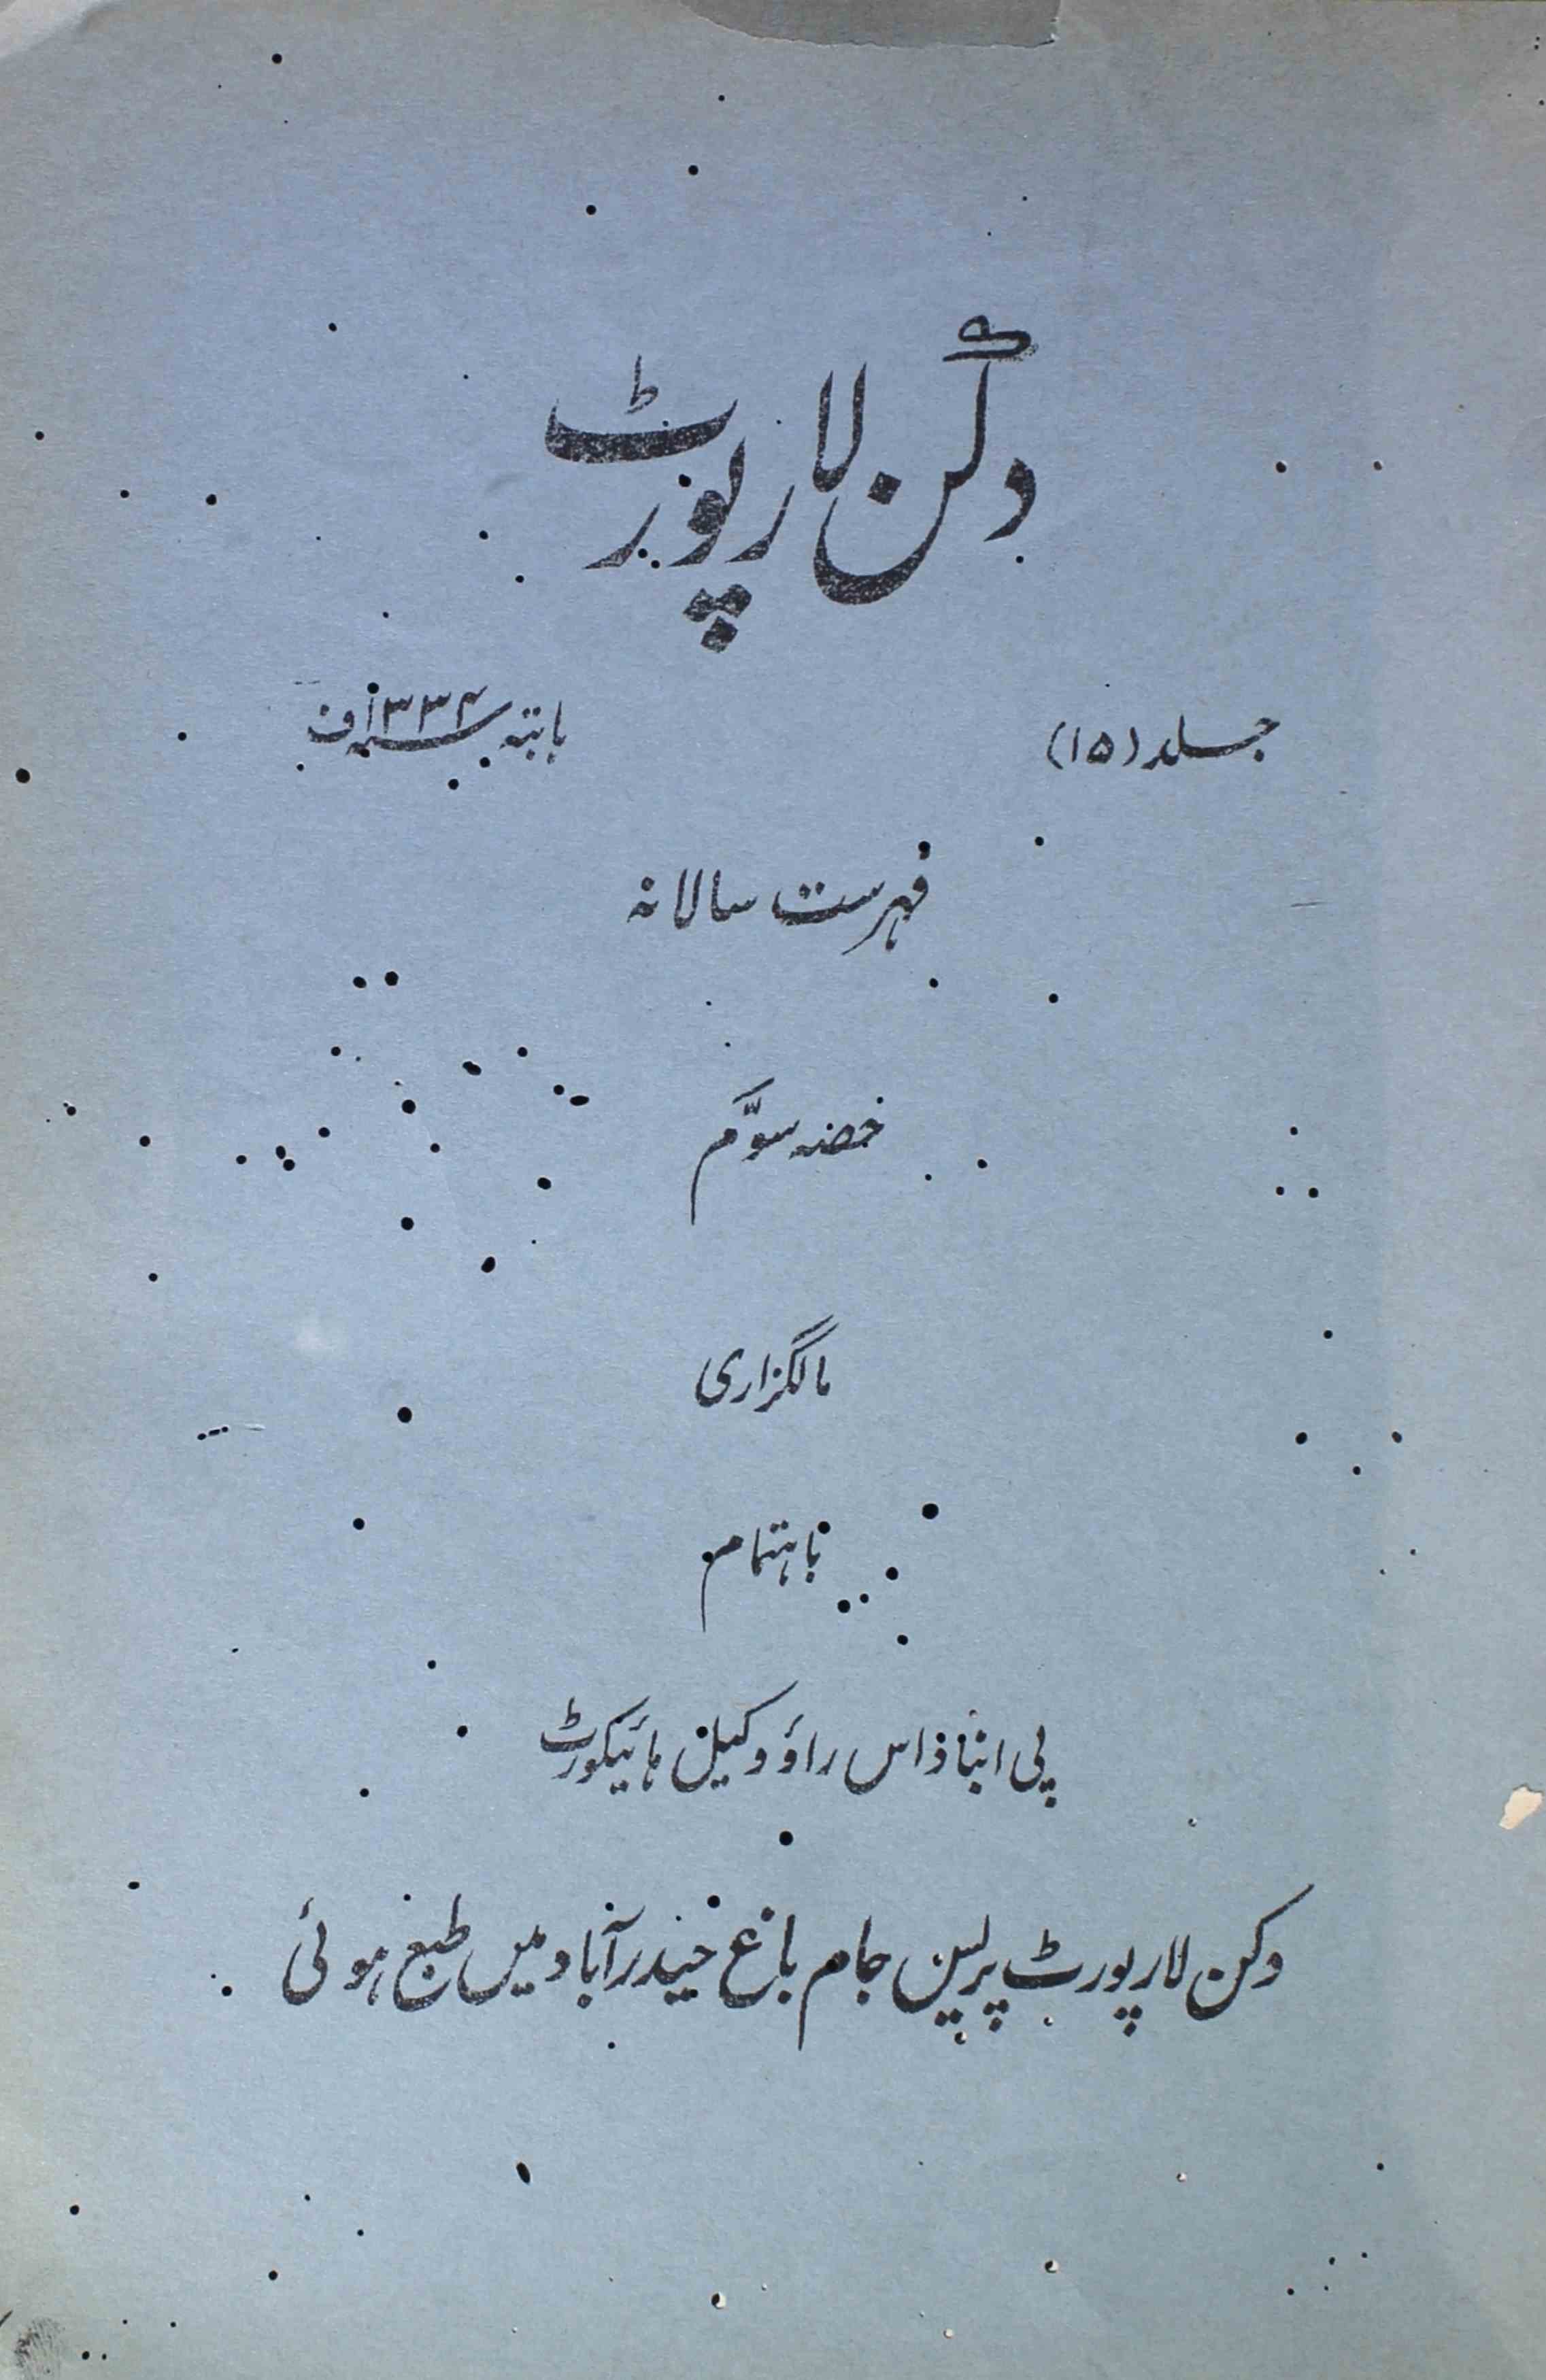 دکن لا رپورٹ
جلد (۱۵) بابتہ سنہ ۱۳۳۴ ف
فہرست سالانہ
حصہ سوّم
مالگزاری
باہتمام
پی انباداس راؤ وکیل ہائیکورٹ
دکن لا رپورٹ پریس جام باغ حیدرآباد میں طبع ہوئی